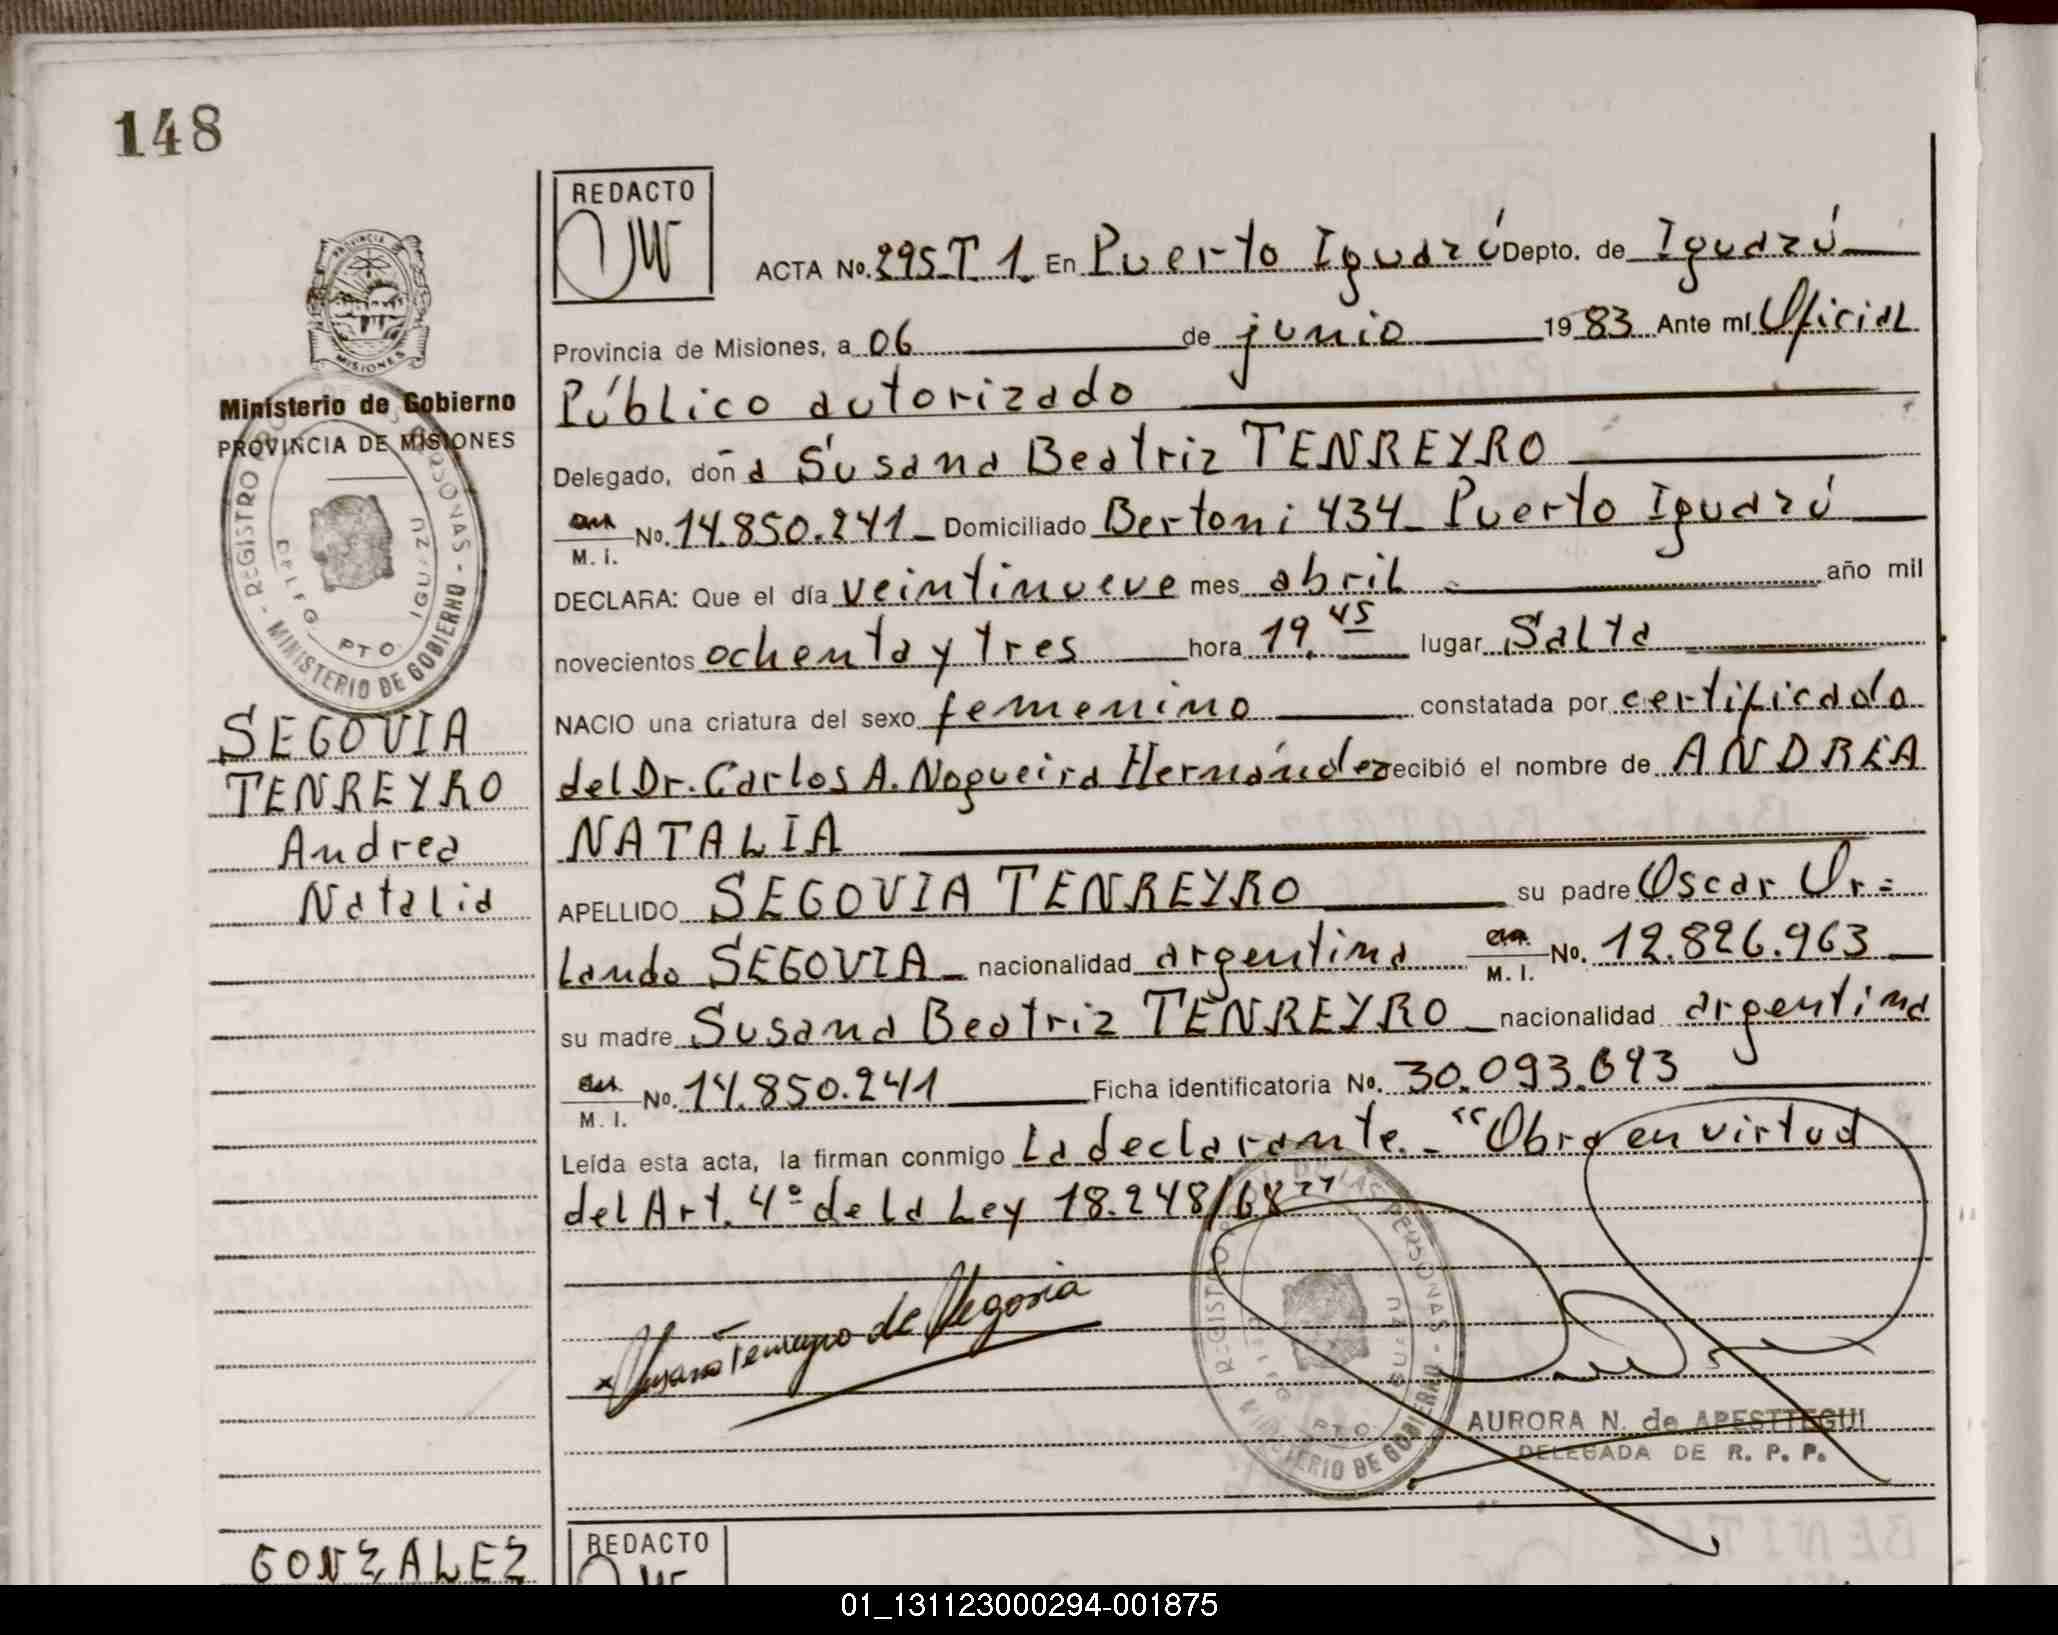 148
REDACTO
ACTA No. 295 T 1 En Puerto Iguazú Depto. de Iguazú
Provincia de Misiones, a 06 de junio 1983 Ante mí Oficial
Público autorizado
Delegado, doña Susana Beatriz TENREYRO
M. I. No. 14.850.241 Domiciliado Bertoni 434 Puerto Iguazú
DECLARA: Que el día veintinueve mes abril año mil
novecientos ochenta y tres hora 19.45 lugar Salta
NACIO una criatura del sexo femenino constatada por certificado
del Dr. Carlos A. Nogueira Hernández recibió el nombre de ANDREA
NATALIA
APELLIDO SEGOVIA TENREYRO su padre Oscar Or=
lando SEGOVIA nacionalidad argentina M. I. No. 12.826.963
su madre Susana Beatriz TENREYRO nacionalidad argentina
M. I. No. 14.850.241 Ficha identificatoria No. 30.093.693
Leída esta acta, la firman conmigo La declarante.- "Obra en virtud
del Art. 4º de la Ley 18.248/68"
Susana Tenreyro de Segovia
AURORA N. de APESTTEGUI
DELEGADA DE R. P. P.
PROVINCIA DE MISIONES
Ministerio de Gobierno
PROVINCIA DE MISIONES
REGISTRO PERSONAS - MINISTERIO DE GOBIERNO
DELEG. PTO. IGUAZU
SEGOVIA
TENREYRO
Andrea
Natalia
REGISTRO DE LAS PERSONAS - MINISTERIO DE GOBIERNO
DELEG. PTO. IGUAZU
GONZALEZ
REDACTO
01_131123000294-001875